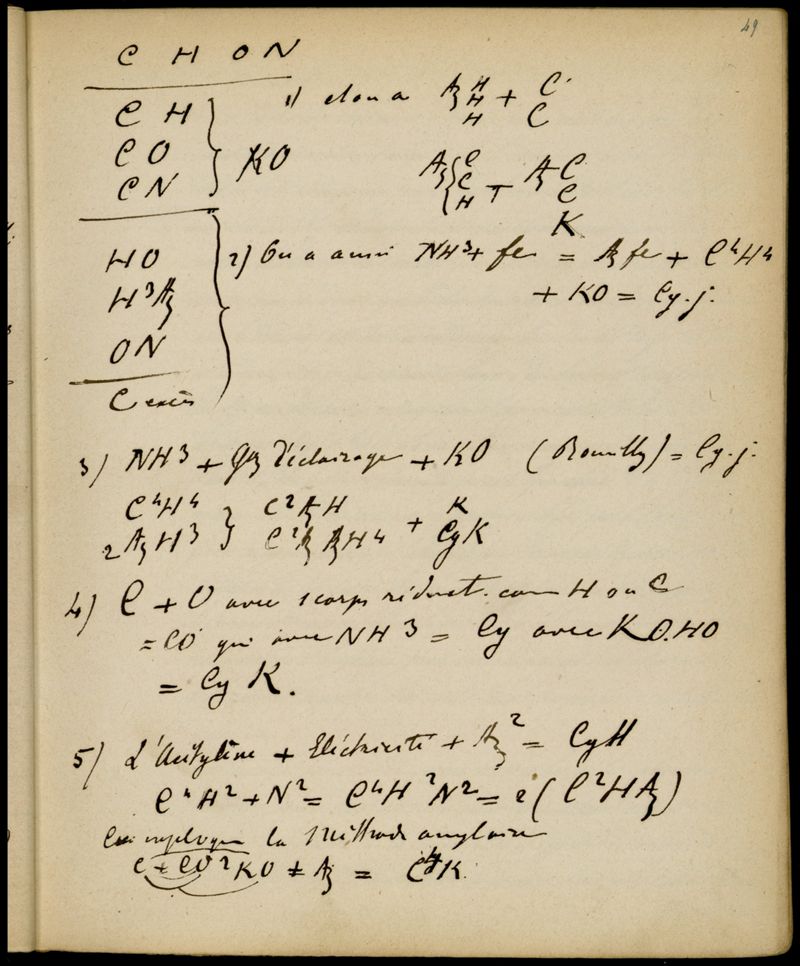 49
C H ON
C H
CO
CN
KO
1) et on a Az H H H + C C
Az C C H + Az C C K
HO
H³Az
ON
C excès
2) On a aussi NH³ + fe = Az fe + C⁴H⁴
+ KO = Cy. j.
3) NH³ + Gaz d'éclairage + KO ( ) = Cy. j.
C⁴H⁴ } C²AzH + K
2AzH³ } C²Az AzH⁴ CyK
4) C + O avec 1 corps réduct. comme H ou C
= CO qui avec NH³ = Cy avec KO.HO
= Cy K.
5) L'Acétylène + Eléctricité + Az² = CyH
C⁴H² + N² = C⁴H²N² = 2(C²HAz)
la Méthode anglaise
C + CO²KO + Az = CyK